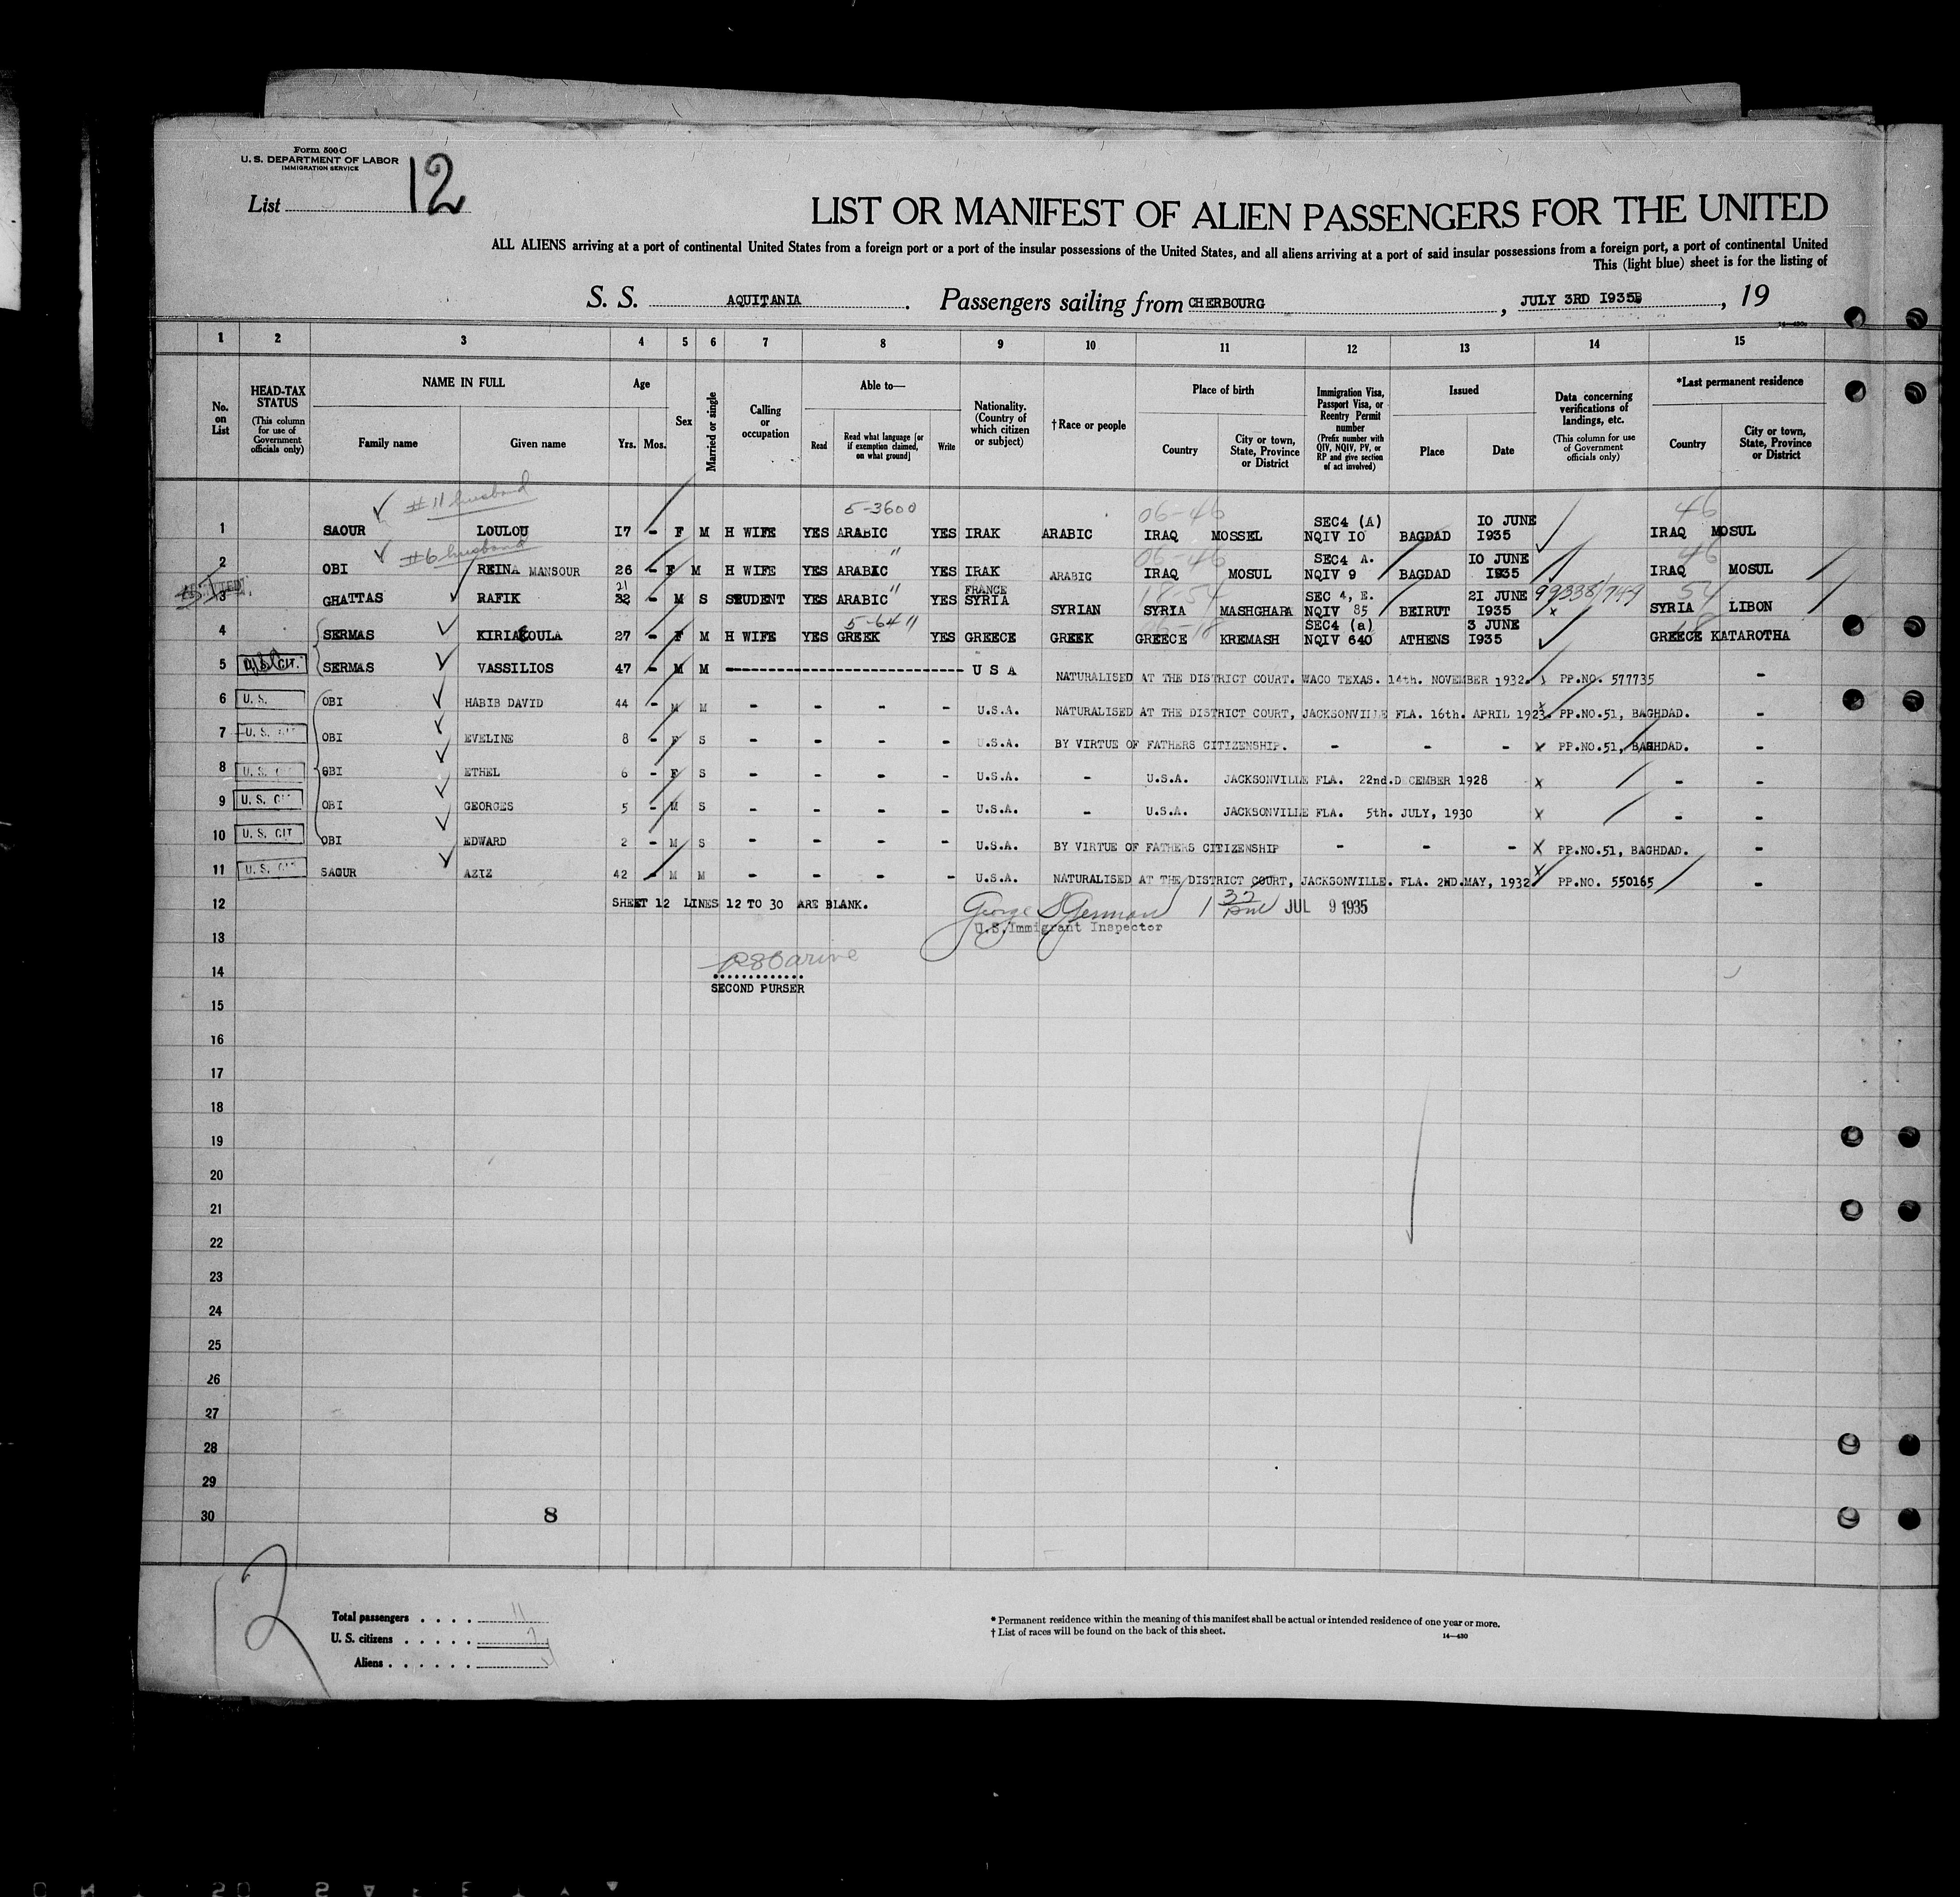 Form 500 C
U. S. DEPARTMENT OF LABOR
IMMIGRATION SERVICE
List 12
LIST OR MANIFEST OF ALIEN PASSENGERS FOR THE UNITED
ALL ALIENS arriving at a port of continental United States from a foreign port or a port of the insular possessions of the United States, and all aliens arriving at a port of said insular possessions from a foreign port, a port of continental United
This (light blue) sheet is for the listing of
S. S. AQUITANIA . Passengers sailing from CHERBOURG , JULY 3RD I935 , 19
1 2 3 4 5 6 7 8 9 10 11 12 13 14 15
No. on List
HEAD-TAX STATUS (This column for use of Government officials only)
NAME IN FULL
Family name Given name
Age
Yrs. Mos.
Sex
Married or single
Calling or occupation
Able to—
Read Read what language [or if exemption claimed, on what ground] Write
Nationality. (Country of which citizen or subject)
†Race or people
Place of birth
Country City or town, State, Province or District
Immigration Visa, Passport Visa, or Reentry Permit number (Prefix number with QIV, NQIV, PV, or RP and give section of act involved)
Issued
Place Date
Data concerning verifications of landings, etc. (This column for use of Government officials only)
*Last permanent residence
Country City or town, State, Province or District
#11 husband 5-3600 06-46 46
1 SAOUR LOULOU I7 - F M H WIFE YES ARABIC YES IRAK ARABIC IRAQ MOSSEL SEC4 (A) NQIV IO BAGDAD IO JUNE I935 IRAQ MOSUL
#6 husband " 06-46 46
2 OBI REINA MANSOUR 26 - F M H WIFE YES ARABIC YES IRAK ARABIC IRAQ MOSUL SEC4 A. NQIV 9 BAGDAD IO JUNE I935 IRAQ MOSUL
21 " FRANCE 18-54 99338/749 54
3 GHATTAS RAFIK 22 - M S STUDENT YES ARABIC YES SYRIA SYRIAN SYRIA MASHGHARA SEC 4, E. NQIV 85 BEIRUT 2I JUNE I935 SYRIA LIBON
5-64 "
4 SERMAS KIRIAKOULA 27 - F M H WIFE YES GREEK YES GREECE GREEK GREECE KREMASH SEC4 (a) NQIV 640 ATHENS 3 JUNE I935 GREECE KATAROTHA
5 U.S. CIT. SERMAS VASSILIOS 47 - M M U S A NATURALISED AT THE DISTRICT COURT. WACO TEXAS. 14th. NOVEMBER 1932. PP.NO. 577735 -
6 U. S. OBI HABIB DAVID 44 - M M - - - - U.S.A. NATURALISED AT THE DISTRICT COURT, JACKSONVILLE FLA. 16th. APRIL 1923. PP.NO.51, BAGHDAD. -
7 U. S. CIT OBI EVELINE 8 - F S - - - - U.S.A. BY VIRTUE OF FATHERS CITIZENSHIP. - - - x PP.NO.51, BAGHDAD. -
8 U. S. C OBI ETHEL 6 - F S - - - - U.S.A. - U.S.A. JACKSONVILLE FLA. 22nd.DECEMBER 1928 x - -
9 U. S. CIT OBI GEORGES 5 - M S - - - - U.S.A. - U.S.A. JACKSONVILLE FLA. 5th. JULY, 1930 x - -
10 U. S. CIT OBI EDWARD 2 - M S - - - - U.S.A. BY VIRTUE OF FATHERS CITIZENSHIP - - - x PP.NO.51, BAGHDAD. -
11 U. S. CIT SAOUR AZIZ 42 - M M - - - - U.S.A. NATURALISED AT THE DISTRICT COURT, JACKSONVILLE. FLA. 2ND.MAY, 1932. PP.NO. 550165 -
12 SHEET 12 LINES 12 TO 30 ARE BLANK. George S German 1 32 PM JUL 9 1935
U.S. Immigrant Inspector
13
14
SECOND PURSER
15
16
17
18
19
20
21
22
23
24
25
26
27
28
29
30 8
12
Total passengers . . . . 11
U. S. citizens . . . . . 7
Aliens . . . . . . 4
* Permanent residence within the meaning of this manifest shall be actual or intended residence of one year or more.
† List of races will be found on the back of this sheet.
14—430